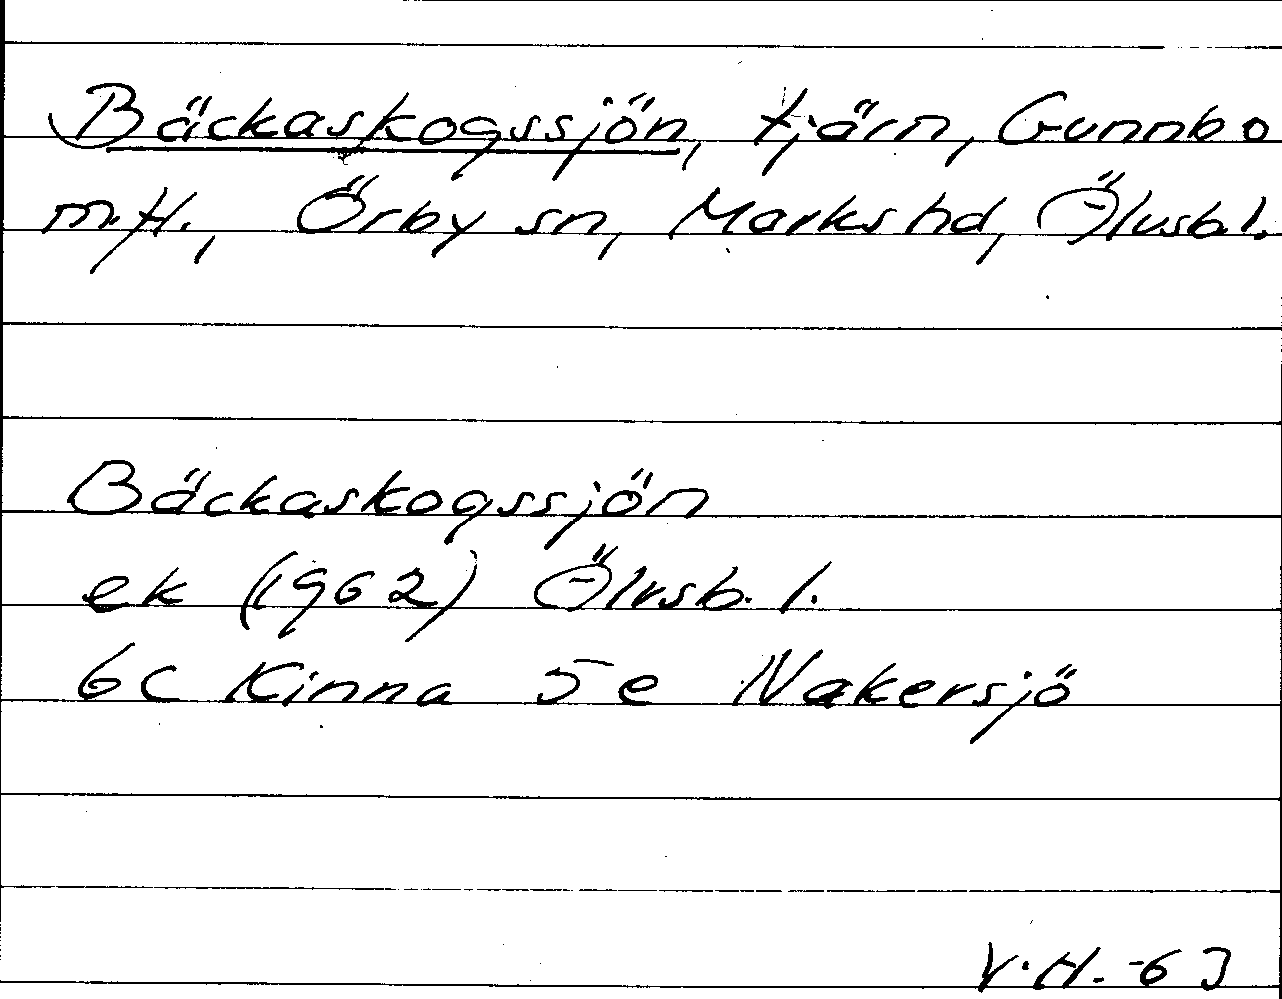 Bäckaskogssjön, tjärn, Gunnbo
m.fl., Örby sn, Marks hd, Älvsb.l.
Bäckaskogssjön
ek (1962) Älvsb. l.
6c Kinna 5e Nakersjö
V.H. -63